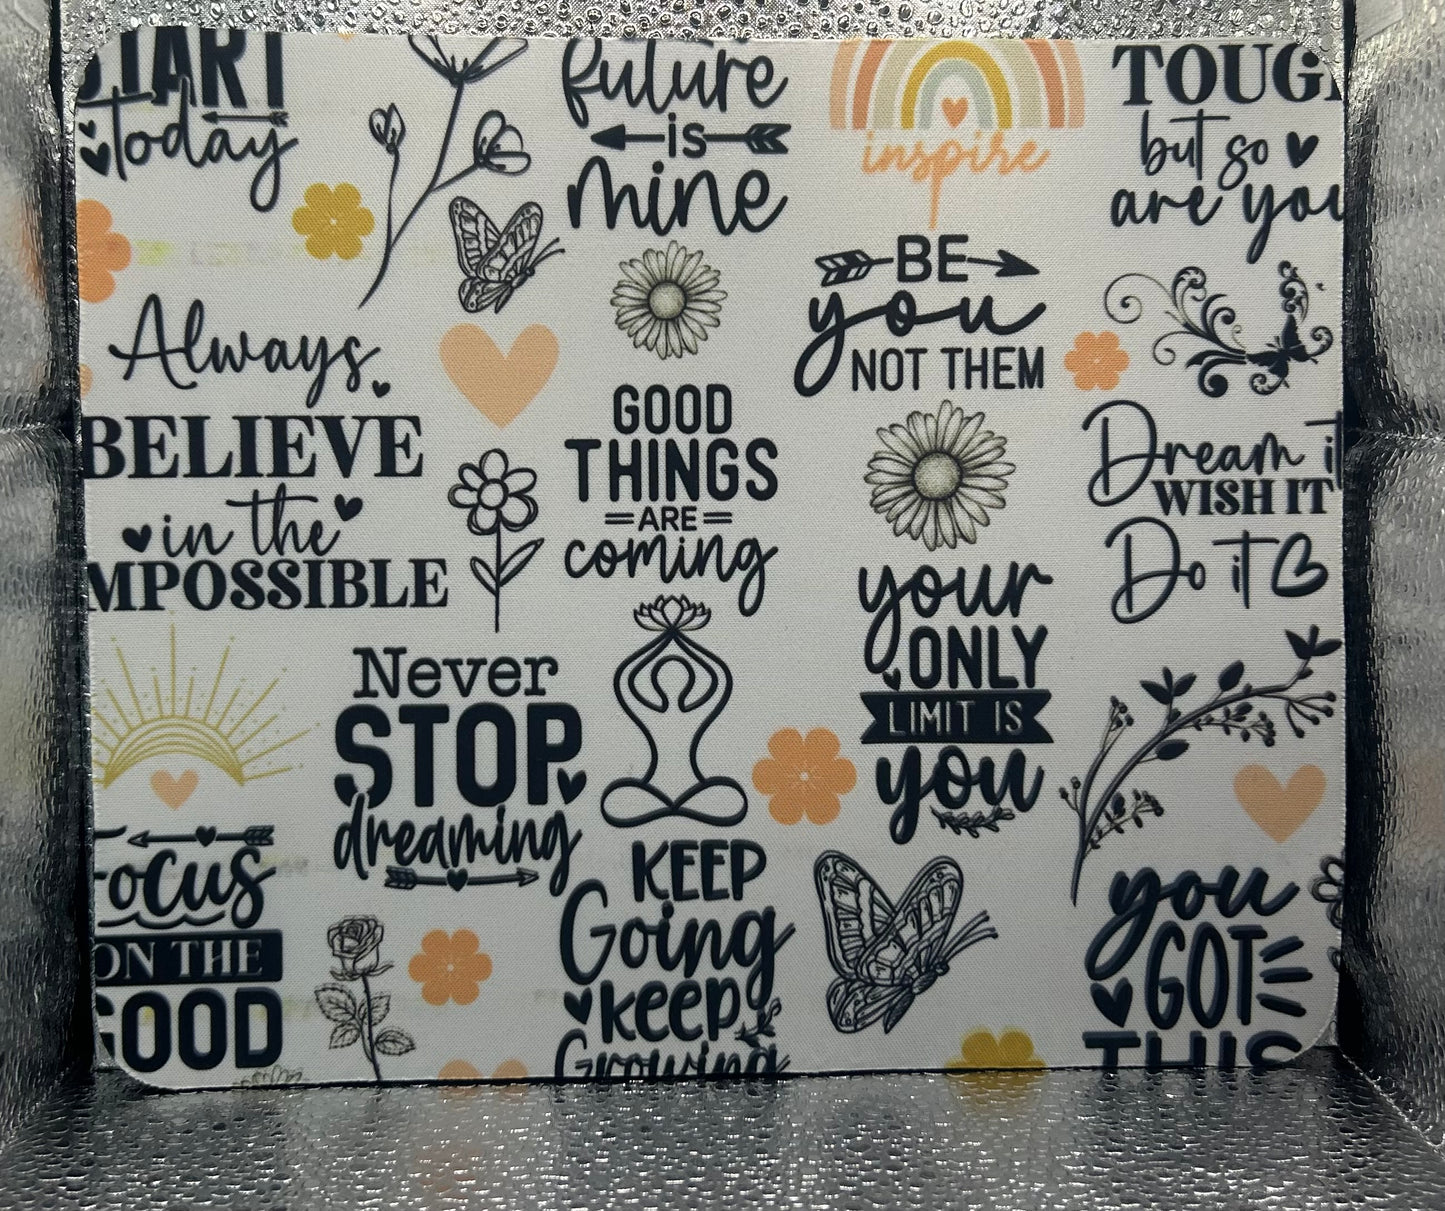 START
today
future
is
mine
inspire
TOUGH
but so
are you
BE
you
NOT THEM
Always
BELIEVE
in the
IMPOSSIBLE
GOOD
THINGS
ARE
coming
Dream it
WISH IT
Do it
your
ONLY
LIMIT IS
you
Never
STOP
dreaming
Focus
ON THE
GOOD
KEEP
Going
keep
Growing
you
GOT
THIS